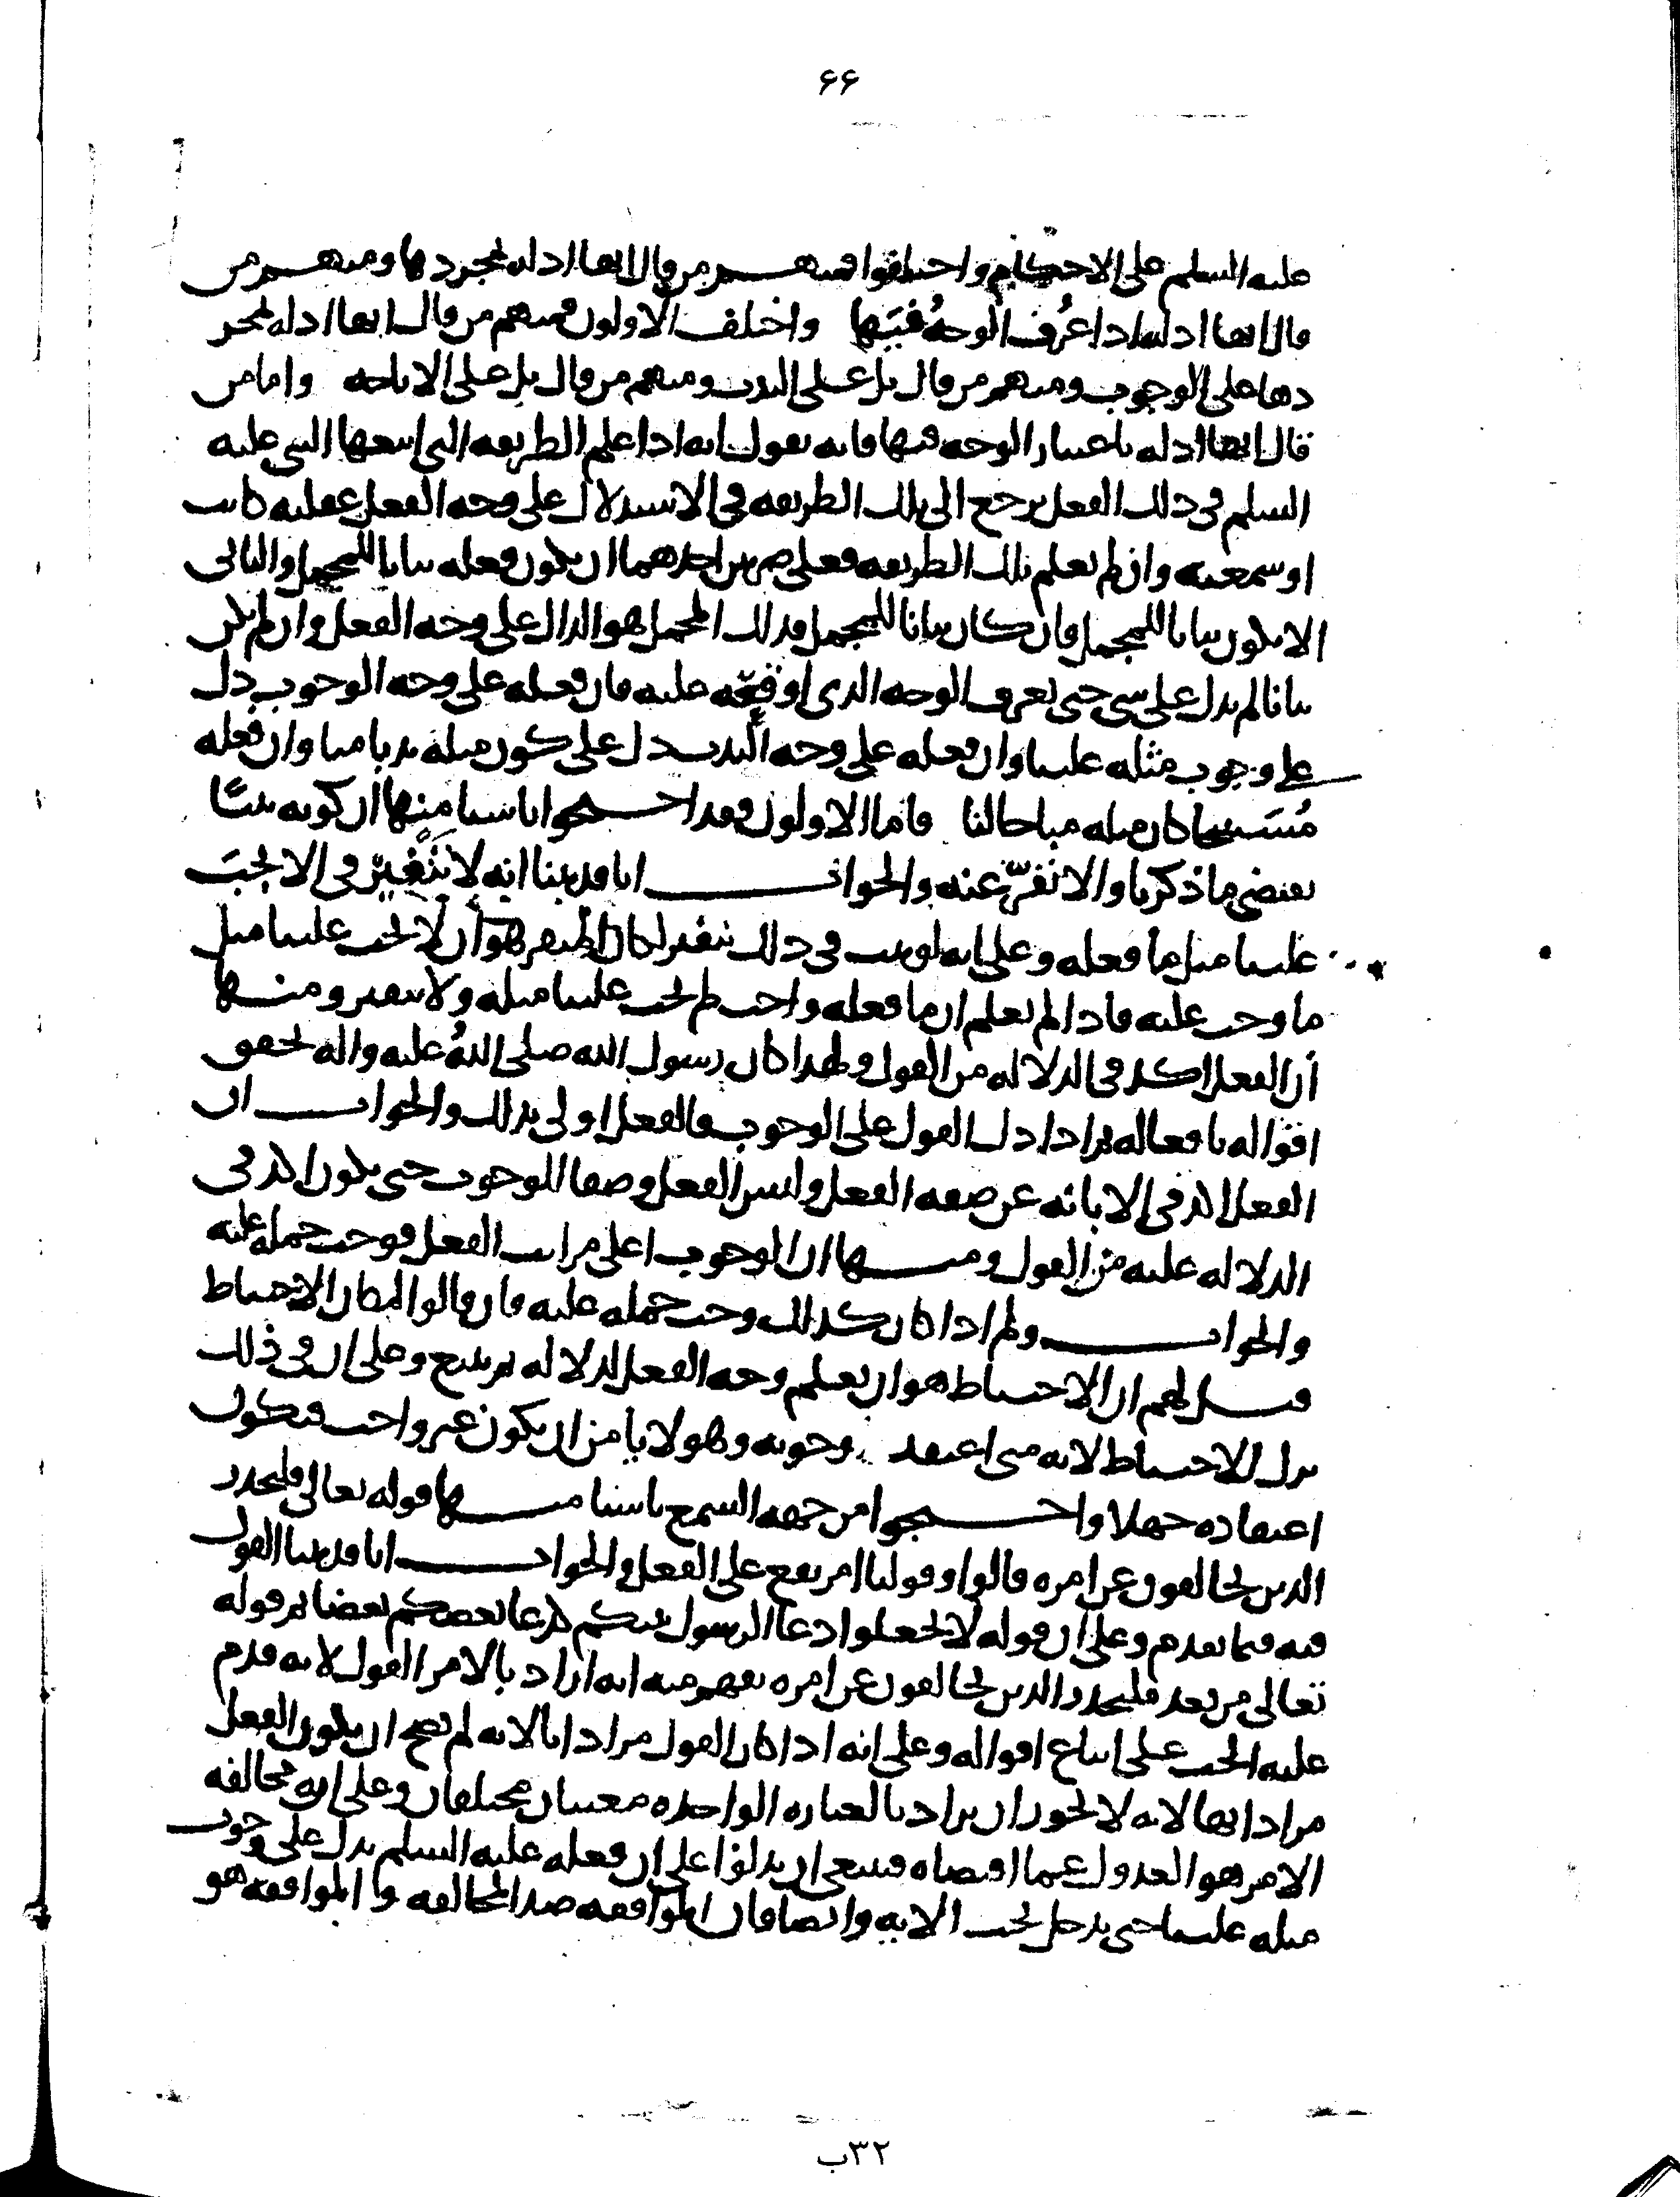 ۶۶
عليه السلم على الاحكام واختلفوا فمنهم من قال انها ادله بمجردها ومنهم من
قال انها ادله اذا عُرف الوجهُ فيَها واختلف الاولون فمنهم من قال انها ادله بمجر
دها على الوجوب ومنهم من قال بل على الندب ومنهم من قال بل على الاباحه واما من
قال انها ادله باعتبار الوجه فيها فانه يقول انه اذا علم الطريقه التي اتبعها النبي عليه
السلم في ذلك الفعل يرجع الى تلك الطريقه في الاستدلال على وجه الفعل عقليه كانت
او سمعيه وان لم يعلم تلك الطريقه فعلى ضربين احدهما ان يكون فعله بيانا للمجمل والثاني
الا يكون بيانا للمجمل فان كان بيانا للمجمل فذلك المجمل هو الدال على وجه الفعل وان لم يكن
بيانا لم يدل على شي حتى يعرف الوجه الذي اوقعه عليه فان فعله على وجه الوجوب دل
على وجوب مثله علينا وان فعله على وجه الندب دل على كون مثله ندبا منا وان فعله
مُستَبيحا كان مثله مباحا لنا فاما الاولون فقد احتجوا باشيا منها ان كونه نبيًّا
يقتضي ما ذكرنا والا نفّر عنه والجواب انا قد بينا انه لا تَنفير في الا يجبَ
علينا مثل ما فعله وعلى انه لو ثبت في ذلك تنفير لكان المنفر هو أن لا يجب علينا مثل
ما وجب عليه فاذا لم نعلم ان ما فعله واجب لم يجب علينا مثله ولا تنفير ومنها
أن الفعل اكد في الدلاله من القول ولهذا كان رسول الله صلى اللهُ عليه واله يحقق
اقواله بافعاله فاذا دل القول على الوجوب فالفعل اولى بذلك والجواب ان
الفعل اكد في الابانه عن صفه الفعل وليس الفعل وصفا للوجوب حتى يكون اكد في
الدلاله عليه من القول ومنها ان الوجوب اعلى مراتب الفعل فوجب حمله عليه
والجواب ولم اذا كان كذلك وجب حمله عليه فان قالوا لمكان الاحتياط
قيل لهم ان الاحتياط هو ان يعلم وجه الفعل لدلاله ثم يتبع وعلى ان في ذلك
ترك الاحتياط لانه متى اعتقد وجوبه وهو لا يامن ان يكون غير واجب فيكون
اعتقاده جهلا واحتجوا من جهه السمع باشيا منها قوله تعالى فليحذر
الذين يخالفون عن امره قالوا وقولنا امر يقع على الفعل والجواب انا قد بينا القول
فيه فيما تقدم وعلى ان قوله لا تجعلوا دعا الرسول بينكم كدعا بعضكم بعضا ثم قوله
تعالى من بعد فليحذر الذين يخالفون عن امره يفهم منه انه اراد بالامر القول لانه قدم
عليه الحث على اتباع اقواله وعلى انه اذا كان القول مرادا بالايه لم يصح ان يكون الفعل
مرادا بها لانه لا يجوز ان يراد بالعباره الواحده معنيان مختلفان وعلى ان مخالفه
الامر هو العدول عما اقتضاه فينبغي ان يدلوا على ان فعله عليه السلم يدل على وجوب
مثله علينا حتى يدخل تحت الايه وايضا فان الموافقه ضد المخالفه والموافقه هو
٣٢ب